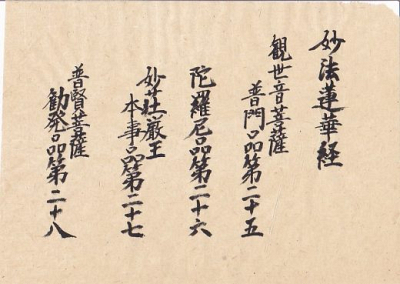 妙法蓮華経
観世音菩薩
普門品第二十五
陀羅尼品第二十六
妙荘厳王
本事品第二十七
普賢菩薩
勧発品第二十八